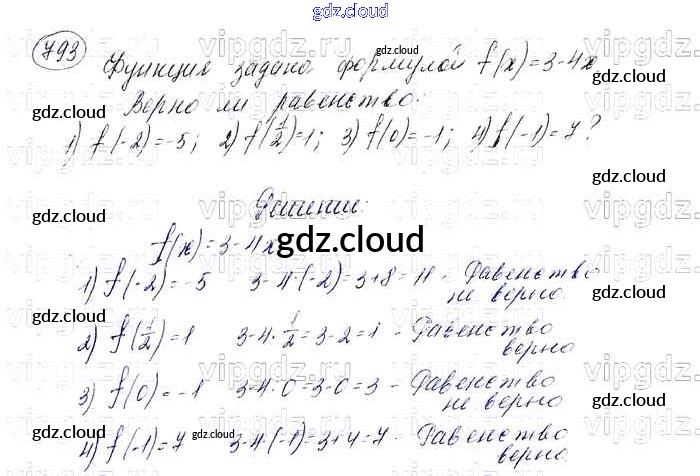 gdz.cloud
793
Функция задана формулой f(x)=3-4x
Верно ли равенство:
1) f(-2)=-5; 2) f(1/2)=1; 3) f(0)=-1; 4) f(-1)=7?
Решение:
f(x)=3-4x
gdz.cloud
1) f(-2)=-5 3-4·(-2)=3+8=11 - Равенство
не верно.
2) f(1/2)=1 3-4·1/2=3-2=1 - Равенство
верно
3) f(0)=-1 3-4·0=3-0=3 - Равенство
не верно
4) f(-1)=7 3-4·(-1)=3+4=7 - Равенство
верно